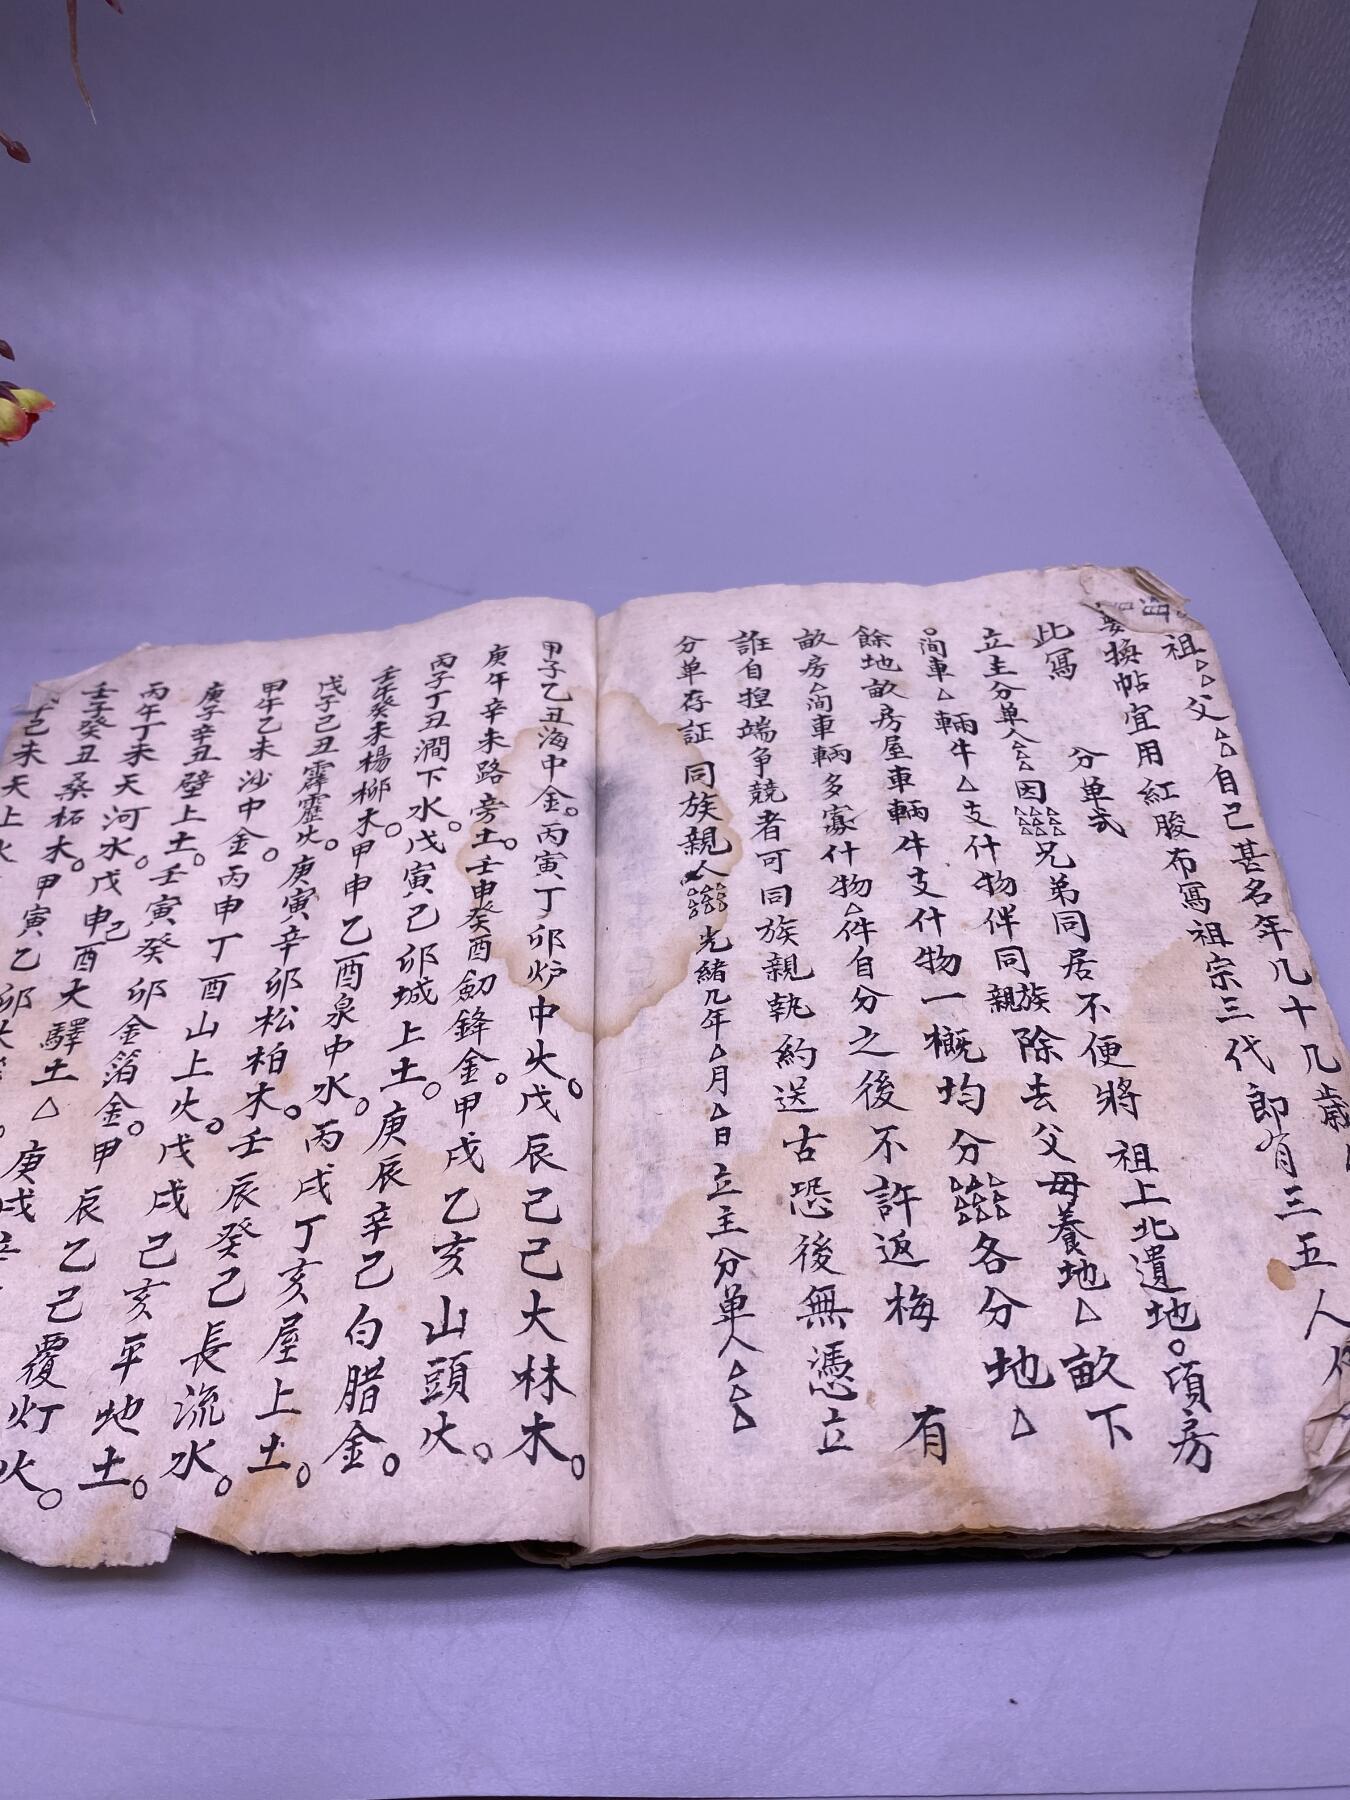 祖△△父△△自己甚名年几十几歲
要換帖宜用紅䝧布寫祖宗三代郎有三五人
此寫
分单式
立主分单人△△因△△△△△△兄弟同居不便將祖上北遺地○項房
○间車△輛牛△支什物伴同族親除去父母養地△畝下
餘地畝房屋車輛牛支什物一概均分△△△△△△各分地△
畝房△间車輛多寡什物△件自分之後不許返悔有
誰自捏端争競者可同族親執約送古恐後無憑立
分单存証同族親人△△△△△△光緒几年△月△日立主分单人△△△
甲子乙丑海中金。丙寅丁卯炉中火。戊辰己己大林木。
庚午辛未路旁土。壬申癸酉劒鋒金。甲戌乙亥山頭火。
丙子丁丑澗下水。戊寅己卯城上土。庚辰辛己白腊金。
壬午癸未楊柳木。甲申乙酉泉中水。丙戌丁亥屋上土。
戊子己丑霹靂火。庚寅辛卯松柏木。壬辰癸己長流水。
甲午乙未沙中金。丙申丁酉山上火。戊戌己亥平地土。
庚子辛丑壁上土。壬寅癸卯金箔金。甲辰乙己覆灯火。
丙午丁未天河水。戊申己酉大驛土△庚戌辛
壬子癸丑桑柘木。甲寅乙卯大
己未天上火